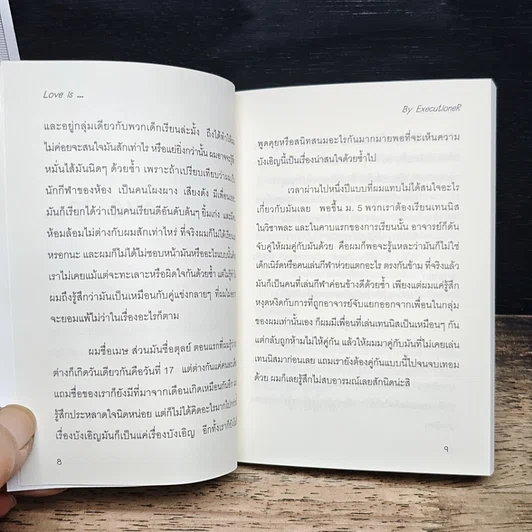 Love is ...
และอยู่กลุ่มเดียวกับพวกเด็กเรียนล่ะมั้ง ถึงได้ทำให้
ไม่ค่อยจะสนใจมันสักเท่าไร หรือแย่ยิ่งกว่านั้น ผมอาจจะรู้สึก
หมั่นไส้มันนิดๆ ด้วยซ้ำ เพราะถ้าเปรียบเทียบว่าผมเป็น
นักกีฬาของห้อง เป็นคนโผงผาง เสียงดัง มีเพื่อน
มันก็เรียกได้ว่าเป็นคนเรียนดีอันดับต้นๆ ยิ้มเก่ง และมี
ห้อมล้อมไม่ต่างกับผมสักเท่าไร ที่จริงผมก็ไม่ได้
หรอกนะ และผมก็ไม่ได้ไม่ชอบหน้ามันหรืออะไรแบบนั้น
เราไม่เคยแม้แต่จะทะเลาะหรือผิดใจกันด้วยซ้ำ แต่ไม่รู้
ผมถึงรู้สึกว่ามันเป็นเหมือนกับคู่แข่งกลายๆ ที่ผมไม่
จะยอมแพ้ไม่ว่าในเรื่องอะไรก็ตาม
ผมชื่อเมษ ส่วนมันชื่อตุลย์ ตอนแรกที่ผมรู้
ต่างก็เกิดวันเดียวกันคือวันที่ 17 แต่ต่างกันแค่คนละเดือน
แถมชื่อของเราก็ยังมีที่มาจากเดือนเกิดเหมือนกันอีก
รู้สึกประหลาดใจนิดหน่อย แต่ก็ไม่ได้คิดอะไรมากไปกว่า
เรื่องบังเอิญมันก็เป็นแค่เรื่องบังเอิญ อีกทั้งเราก็ยังไม่
8
By ExecutioneR
พูดคุยหรือสนิทสนมอะไรกันมากมายพอที่จะเห็นความ
บังเอิญนี้เป็นเรื่องน่าสนใจด้วยซ้ำไป
เวลาผ่านไปหนึ่งปีแบบที่ผมแทบไม่ได้สนใจอะไร
เกี่ยวกับมันเลย พอขึ้น ม. 5 พวกเราต้องเรียนเทนนิส
ในวิชาพละ และในคาบแรกของการเรียนนั้น อาจารย์ก็ดัน
จับคู่ให้ผมคู่กับมันด้วย คือผมก็พอจะรู้แหละว่ามันก็ไม่ใช่
เด็กเนิร์ดหรือคนเล่นกีฬาห่วยแตกอะไร ตรงกันข้าม ที่จริงแล้ว
มันก็เป็นคนที่เล่นกีฬาค่อนข้างดีด้วยซ้ำ เพียงแต่ผมแค่รู้สึก
หงุดหงิดกับการที่ถูกอาจารย์จับแยกออกจากเพื่อนในกลุ่ม
ของผมเท่านั้นเอง ก็ผมมีเพื่อนที่เล่นเทนนิสเป็นเหมือนๆ กัน
แต่กลับถูกห้ามไม่ให้คู่กัน แล้วให้ผมมาคู่กับมันที่ไม่เคยเล่น
เทนนิสมาก่อนเลย แถมเรายังต้องคู่กันแบบนี้ไปจนจบเทอม
ด้วย ผมก็เลยรู้สึกไม่สบอารมณ์เลยสักนิดน่ะสิ
๑